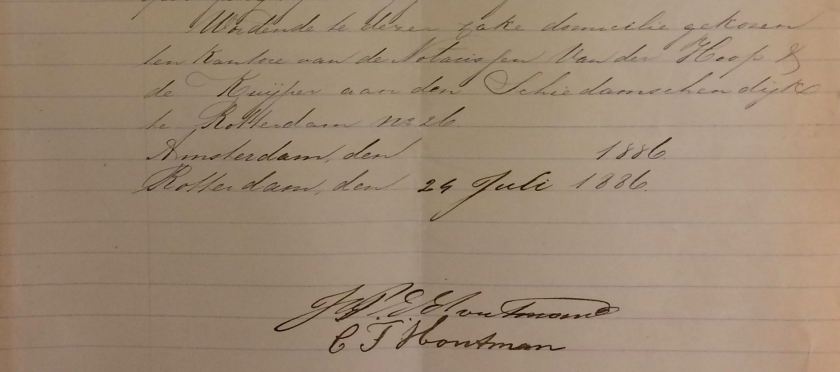 Wordende te dezer zake domicilie gekozen
ten Kantore van de Notarissen Van der Hoop &
de Kuyper aan den Schiedamschendijk
te Rotterdam no 26.
Amsterdam, den 1886.
Rotterdam, den 29 Juli 1886.
Houtman
C F Houtman